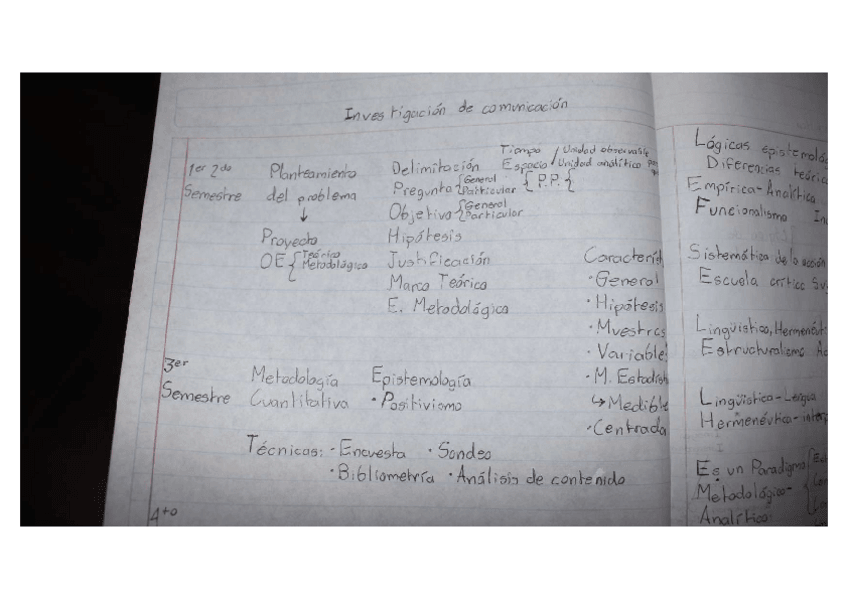 Investigación de comunicación
1er 2do Semestre
Planteamiento
del problema
↓
Proyecto
OE { Teórico
Metodológico
Delimitación
Tiempo
Espacio
Unidad observable
Unidad analítico
Pregunta { General
Particular { P.P. {
Objetivo { General
Particular
Hipótesis
Justificación
Marco Teórico
E. Metodológico
Caracterís
• General
• Hipótesis
• Muestras
• Variable
• M. Estadíst
↳ Medible
• Centrada
3er
Semestre
Metodología
Cuantitativa
Epistemología
• Positivismo
Técnicas: • Encuesta • Sondeo
• Bibliometría • Análisis de contenido
4to
Lógicas epistemológ
Diferencias teóric
Empírica-Analítica
Funcionalismo
Sistemática de la acción
Escuela crítica
Lingüístico, Hermenéut
Estructuralismo
Lingüístico-Lengua
Hermenéutico-interp
Es un Paradigma
Metodológico-
Analítico.